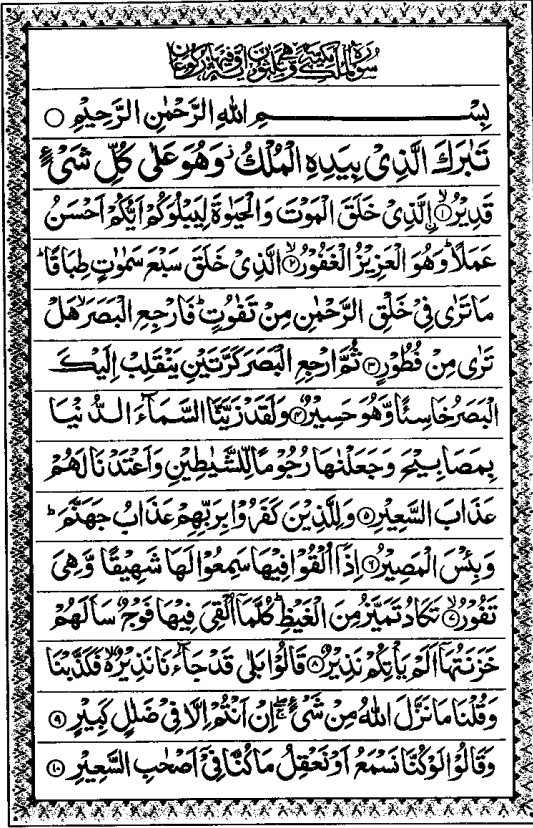 سورة الملك مكية وهي ثلثون اية وفيها ركوعان
بِسْمِ اللهِ الرَّحْمٰنِ الرَّحِيْمِ ○
تَبٰرَكَ الَّذِيْ بِيَدِهِ الْمُلْكُ ۡ وَهُوَ عَلٰى كُلِّ شَيْءٍ
قَدِيْرُۨ ۙ﴿١﴾ اِلَّذِيْ خَلَقَ الْمَوْتَ وَالْحَيٰوةَ لِيَبْلُوَكُمْ اَيُّكُمْ اَحْسَنُ
عَمَلًا ؕ وَهُوَ الْعَزِيْزُ الْغَفُوْرُ ۙ﴿٢﴾ الَّذِيْ خَلَقَ سَبْعَ سَمٰوٰتٍ طِبَاقًا ؕ
مَا تَرٰى فِيْ خَلْقِ الرَّحْمٰنِ مِنْ تَفٰوُتٍ ؕ فَارْجِعِ الْبَصَرَ ۙ هَلْ
تَرٰى مِنْ فُطُوْرٍ ﴿٣﴾ ثُمَّ ارْجِعِ الْبَصَرَ كَرَّتَيْنِ يَنْقَلِبْ اِلَيْكَ
الْبَصَرُ خَاسِئًا وَّهُوَ حَسِيْرٌ ﴿٤﴾ وَلَقَدْ زَيَّنَّا السَّمَآءَ الدُّنْيَا
بِمَصَابِيْحَ وَجَعَلْنٰهَا رُجُوْمًا لِّلشَّيٰطِيْنِ وَاَعْتَدْنَا لَهُمْ
عَذَابَ السَّعِيْرِ ﴿٥﴾ وَلِلَّذِيْنَ كَفَرُوْا بِرَبِّهِمْ عَذَابُ جَهَنَّمَ ؕ
وَبِئْسَ الْمَصِيْرُ ﴿٦﴾ اِذَآ اُلْقُوْا فِيْهَا سَمِعُوْا لَهَا شَهِيْقًا وَّهِيَ
تَفُوْرُ ۙ﴿٧﴾ تَكَادُ تَمَيَّزُ مِنَ الْغَيْظِ ؕ كُلَّمَآ اُلْقِيَ فِيْهَا فَوْجٌ سَاَلَهُمْ
خَزَنَتُهَآ اَلَمْ يَاْتِكُمْ نَذِيْرٌ ﴿٨﴾ قَالُوْا بَلٰى قَدْ جَآءَنَا نَذِيْرٌ ۙ فَكَذَّبْنَا
وَقُلْنَا مَا نَزَّلَ اللهُ مِنْ شَيْءٍ ۚ اِنْ اَنْتُمْ اِلَّا فِيْ ضَلٰلٍ كَبِيْرٍ ﴿٩﴾
وَقَالُوْا لَوْ كُنَّا نَسْمَعُ اَوْ نَعْقِلُ مَا كُنَّا فِيْٓ اَصْحٰبِ السَّعِيْرِ ﴿١٠﴾